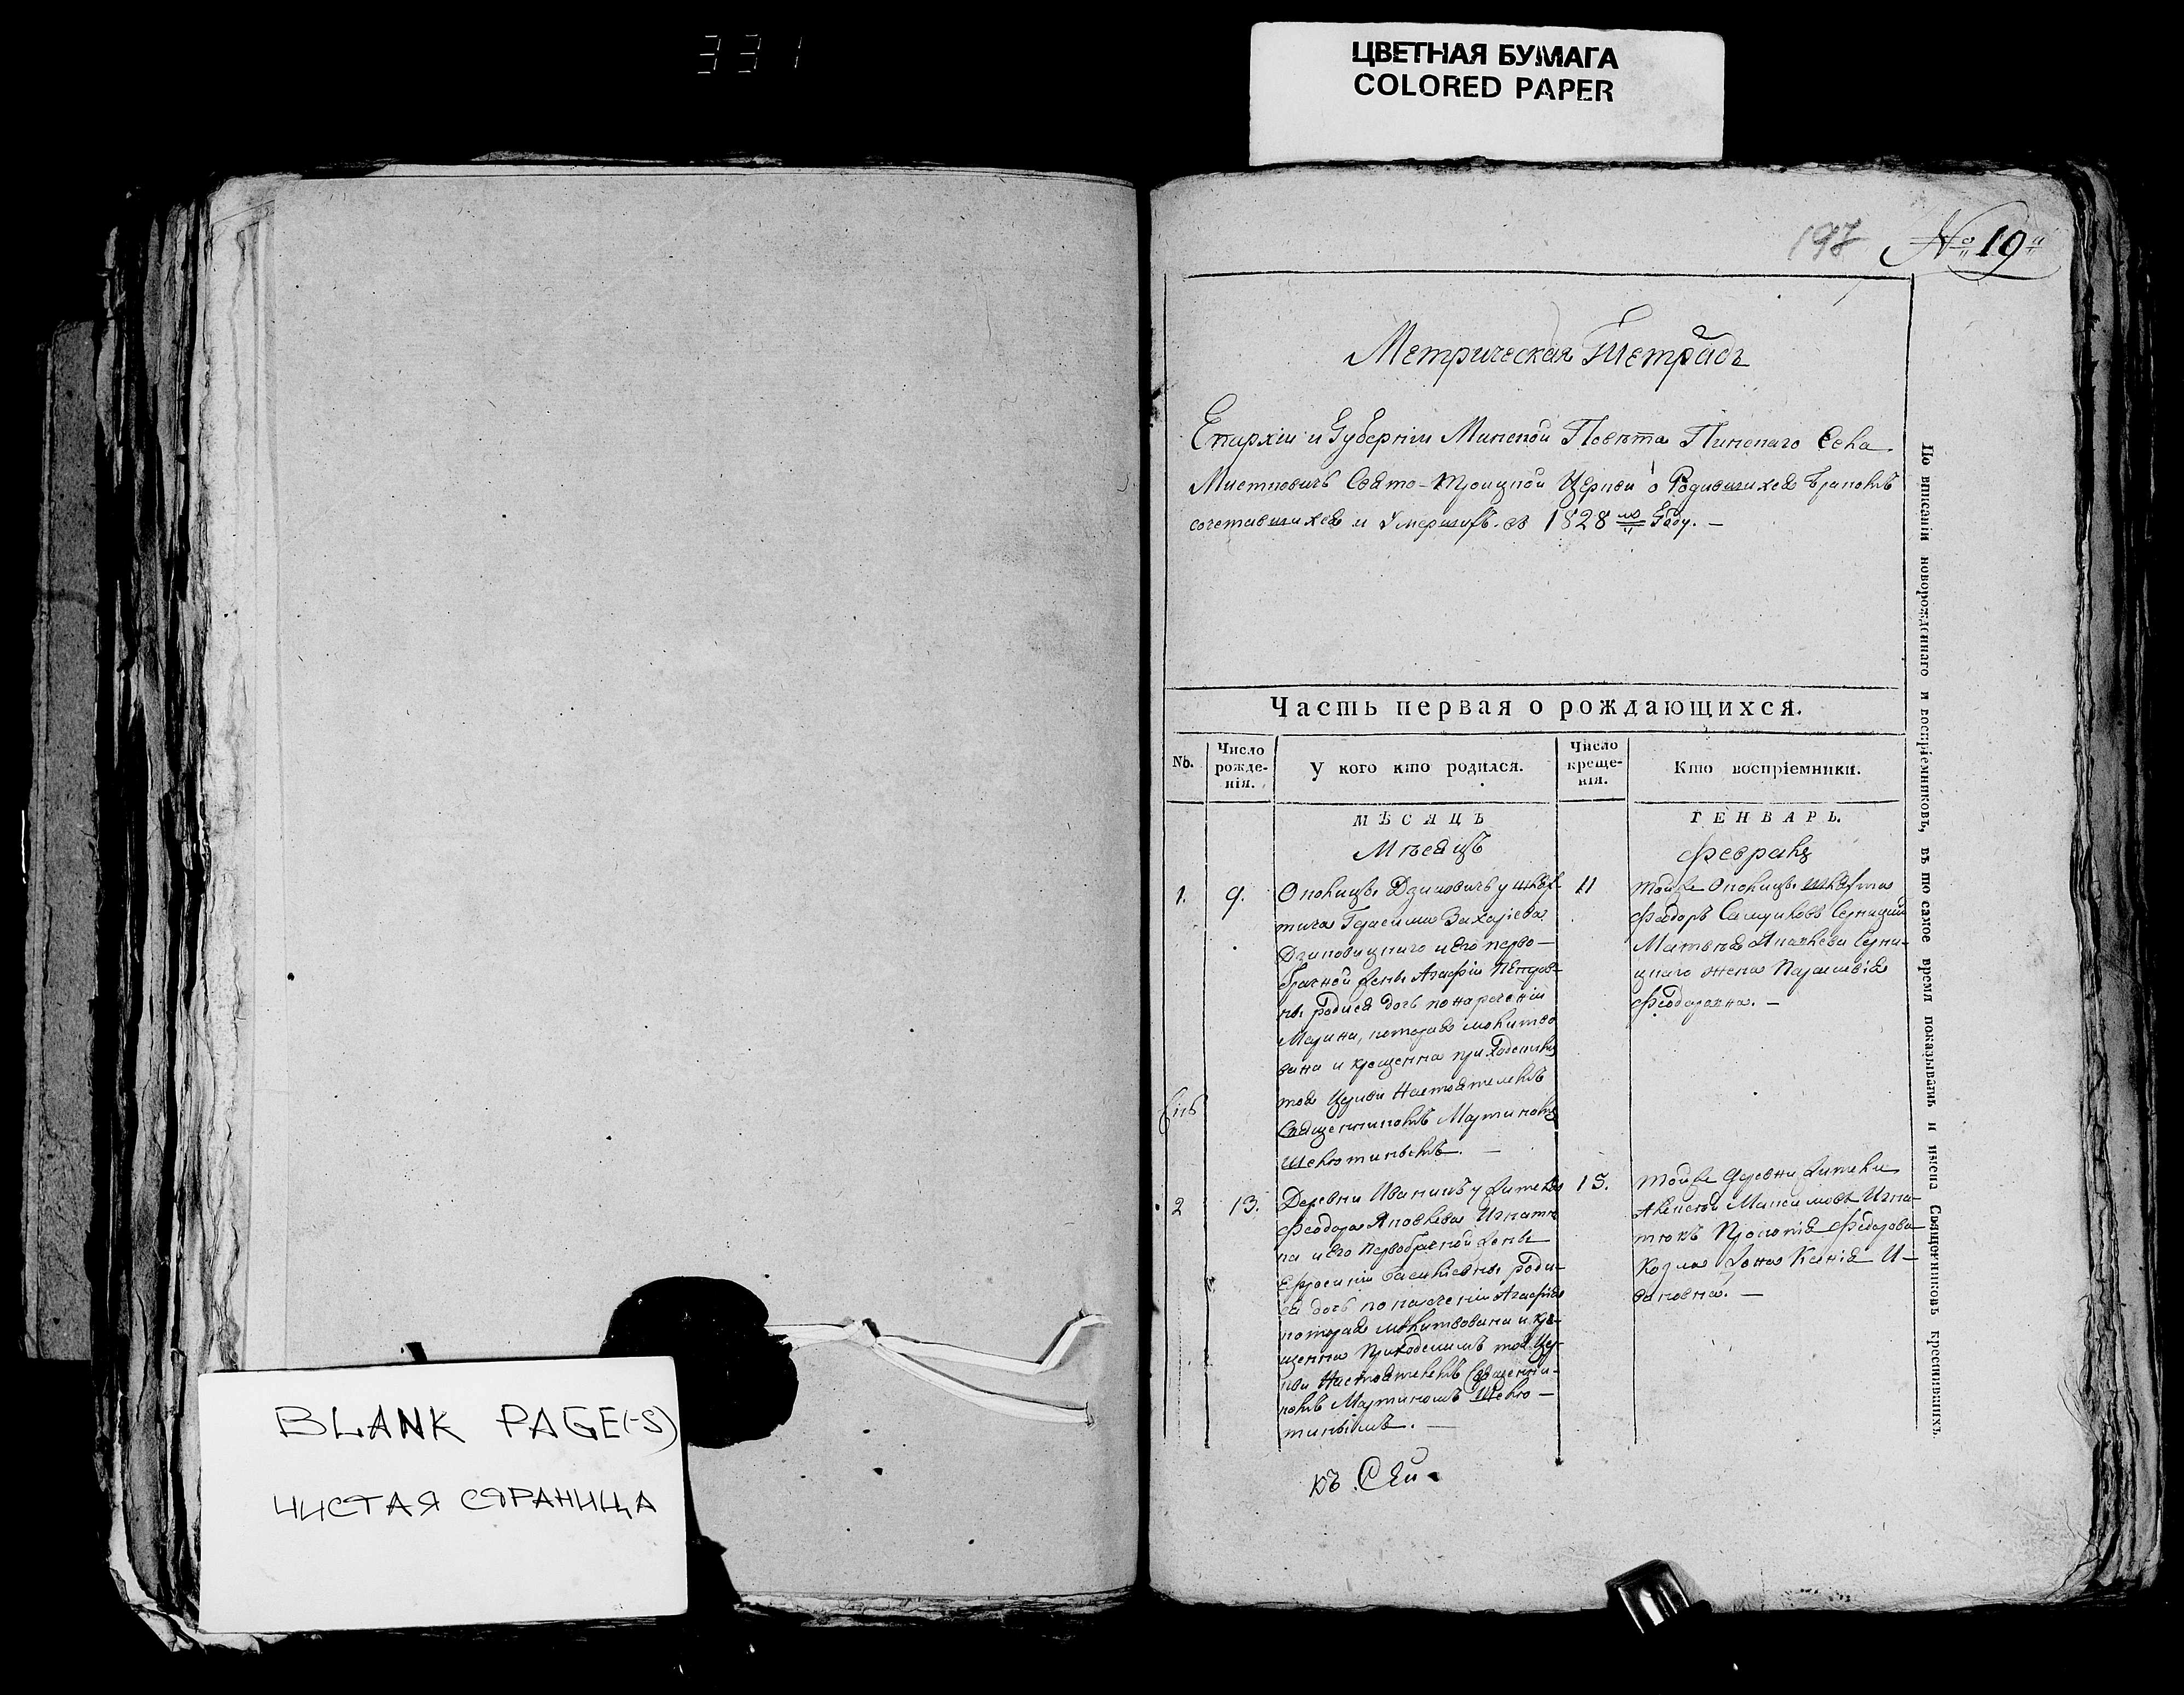 331
ЦВЕТНАЯ БУМАГА
COLORED PAPER
BLANK PAGE(-S)
ЧИСТАЯ СТРАНИЦА
197 № 19
Метрическая Тетрадь
Епархіи и Губерніи Минской Повѣта Пинскаго Села
Мистковичь Свято-Троицкой Церкви о Родившихся Бракомъ
сочетавшихся и Умершихъ въ 1828 мъ Году. —
Часть первая о рождающихся.
No.
Число рожде-нія.
У кого кто родился.
Число креще-нія.
Кто воспріемники.
МѢСЯЦЪ ГЕНВАРЬ.
Мѣсяцъ Февраль
1. 9.
Околицы у шлях-
тича Герасима Захаріева
и его перво-
брачной жены Агафіи Петров-
ны родися дочь по нареченіи
Марина, которая молитво
вана и крещенна приходскимъ
тоя Церкви Настоятелемъ
Священникомъ Мартиномъ
11
тойже Околицы шляхта
Феодоръ
Матвея Яковлева
жена Параскевія
Феодоровна. —
2 13.
Деревни Иваникъ у жителя
Феодора Яковлева Игнатю
ка и его первобрачной жены
Ефросиніи Василіевны роди-
ся дочь по нареченіи Агафія
которая молитвована и кре-
щенна Приходскимъ тоя Цер-
кви Настоятелемъ Священни-
комъ Мартиномъ
15.
тойже Деревни жители
Алексей Максимовъ Игна-
тюкъ Федорова
жона Ксенія И-
вановна. —
къ Сей
По вписаніи новорожденнаго и воспріемниковъ, въ то самое время показывать и имена Священниковъ крестившихъ.